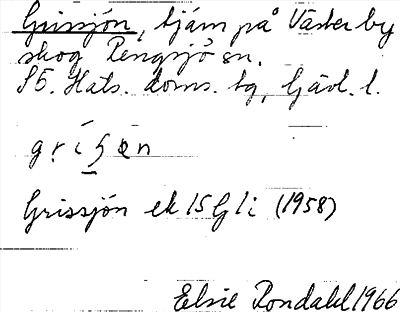 Grissjön, tjärn på Västerby
skog Rengsjö sn.
S5. Häls. doms. bg, Gävl. l.
Grissjön ek 15G 1i (1958)
Elsie Rondahl 1966